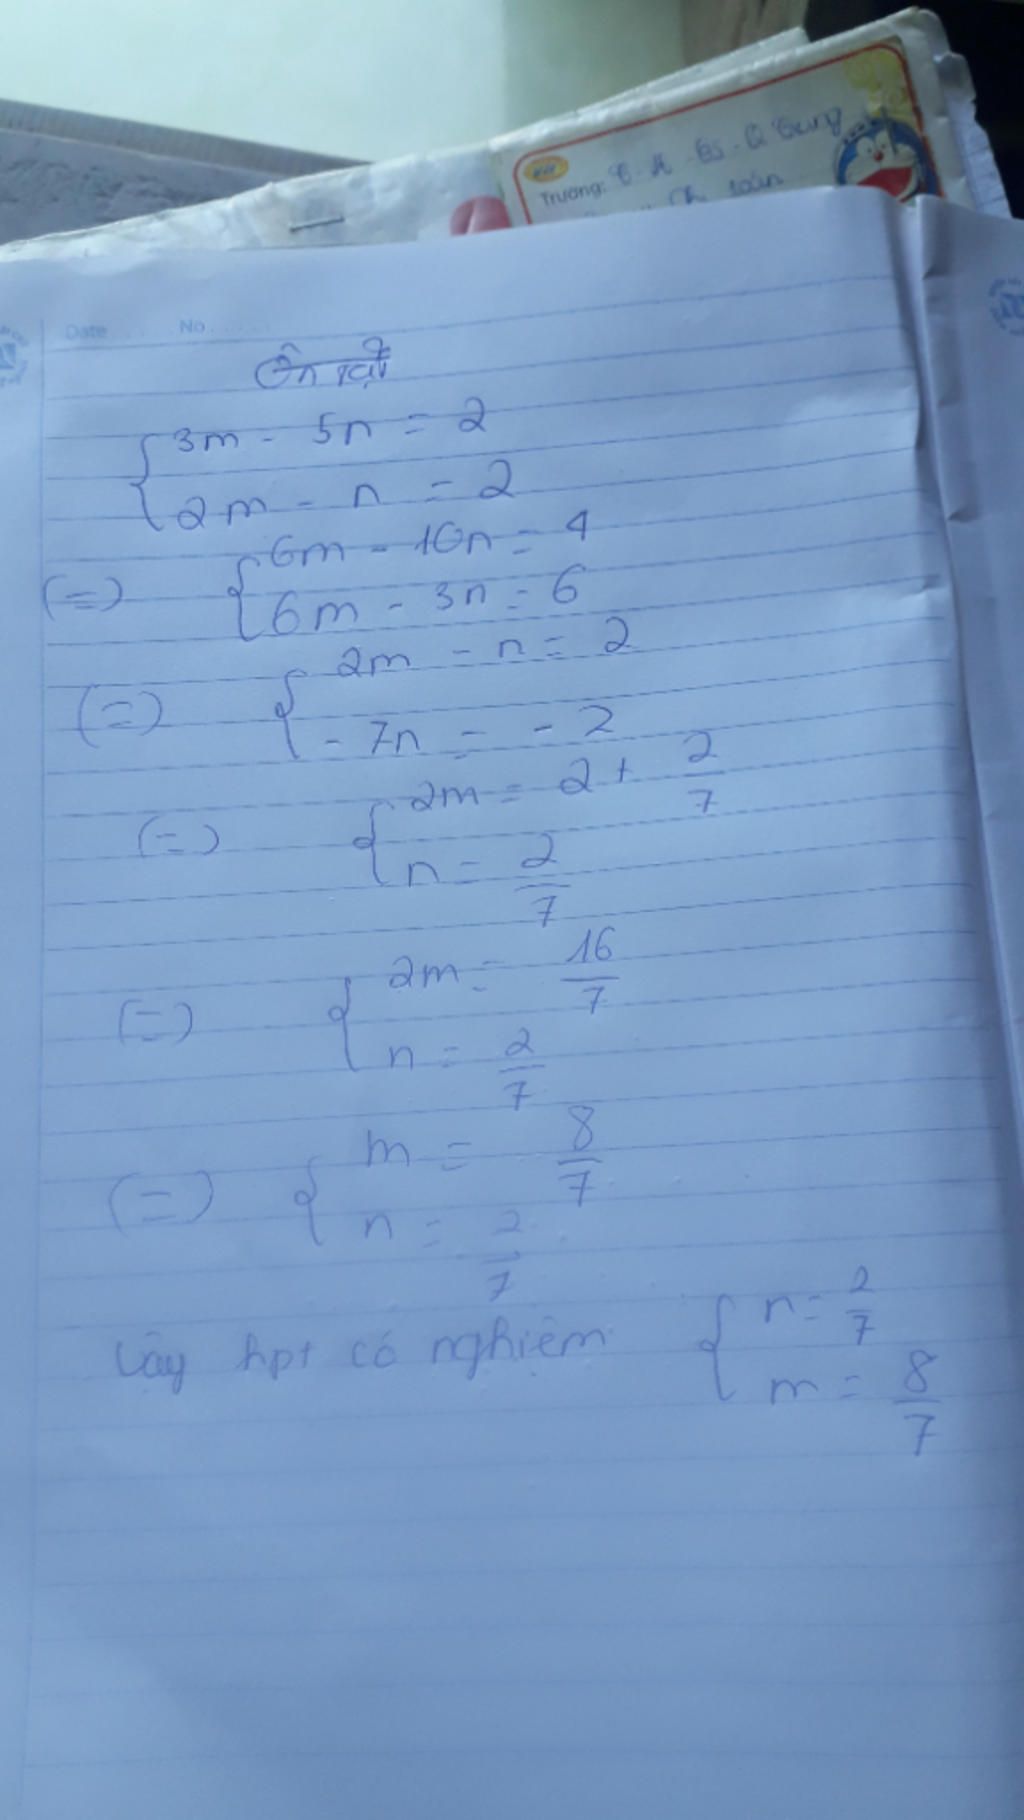 Trường: T.H - CS - Q Trung
toán
Date ......... No .........
Ôn tập
{ 3m - 5n = 2
2m - n = 2
(=) { 6m - 10n = 4
6m - 3n = 6
(=) { 2m - n = 2
- 7n = - 2
(=) { 2m = 2 + 2/7
n = 2/7
(=) { 2m = 16/7
n = 2/7
(=) { m = 8/7
n = 2/7
Vây hpt có nghiệm { n = 2/7
m = 8/7